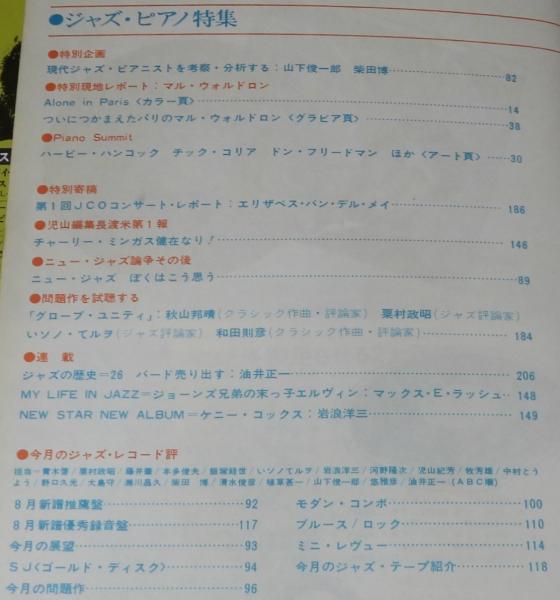 ●ジャズ・ピアノ特集
●特別企画
現代ジャズ・ピアニストを考察・分析する：山下俊一郎 柴田博…82
●特別現地レポート：マル・ウォルドロン
Alone in Paris〈カラー頁〉…14
ついにつかまえたパリのマル・ウォルドロン〈グラビア頁〉…38
●Piano Summit
ハービー・ハンコック チック・コリア ドン・フリードマン ほか〈アート頁〉…30
●特別寄稿
第1回JCOコンサート・レポート：エリザベス・バン・デル・メイ…186
●児山編集長渡米第1報
チャーリー・ミンガス健在なり！…146
●ニュー・ジャズ論争その後
ニュー・ジャズ ぼくはこう思う…89
●問題作を試聴する
「グローブ・ユニティ」：秋山邦晴(クラシック作曲・評論家) 粟村政昭(ジャズ評論家)
いソノ・てルヲ(ジャズ評論家) 和田則彦(クラシック作曲・評論家)…184
●連 載
ジャズの歴史＝26 バード売り出す：油井正一…206
MY LIFE IN JAZZ＝ジョーンズ兄弟の末っ子エルヴィン：マックス・E・ラッシュ…148
NEW STAR NEW ALBUM＝ケニー・コックス：岩浪洋三…149
●今月のジャズ・レコード評
担当＝青木啓/粟村政昭/藤井肇/本多俊夫/飯塚経世/いソノてルヲ/岩浪洋三/河野隆次/児山紀芳/牧芳雄/中村とう
よう/野口久光/大島守/瀬川昌久/柴田 博/清水俊彦/植草甚一/山下俊一郎/悠雅彦/油井正一(ABC順)
8月新譜推薦盤…92
8月新譜優秀録音盤…117
今月の展望…93
SJ〈ゴールド・ディスク〉…94
今月の問題作…96
モダン・コンボ…100
ブルース/ロック…110
ミニ・レヴュー…114
今月のジャズ・テープ紹介…118